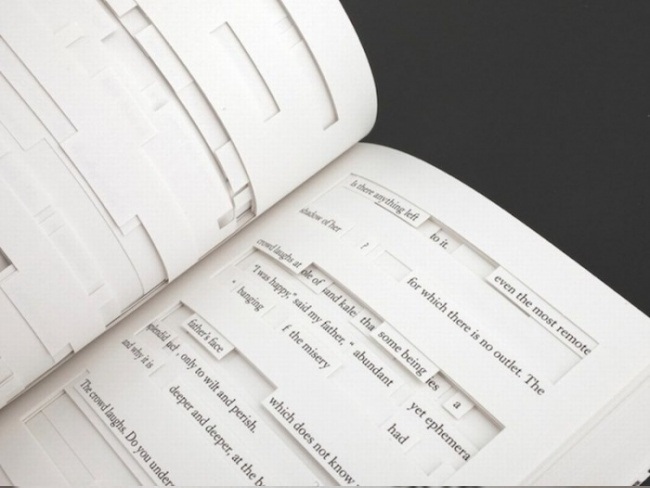 Is there anything left
shadow of her to it. even the most remote
? for which there is no outlet. The
crowd laughs at ole of and kale tha some being les a
"I was happy," said my father, " abundant yet ephemera
hanging f the misery had
splendid father's face
and why it is , only to wilt and perish. which does not know
deeper and deeper, at the b
The crowd laughs. Do you under